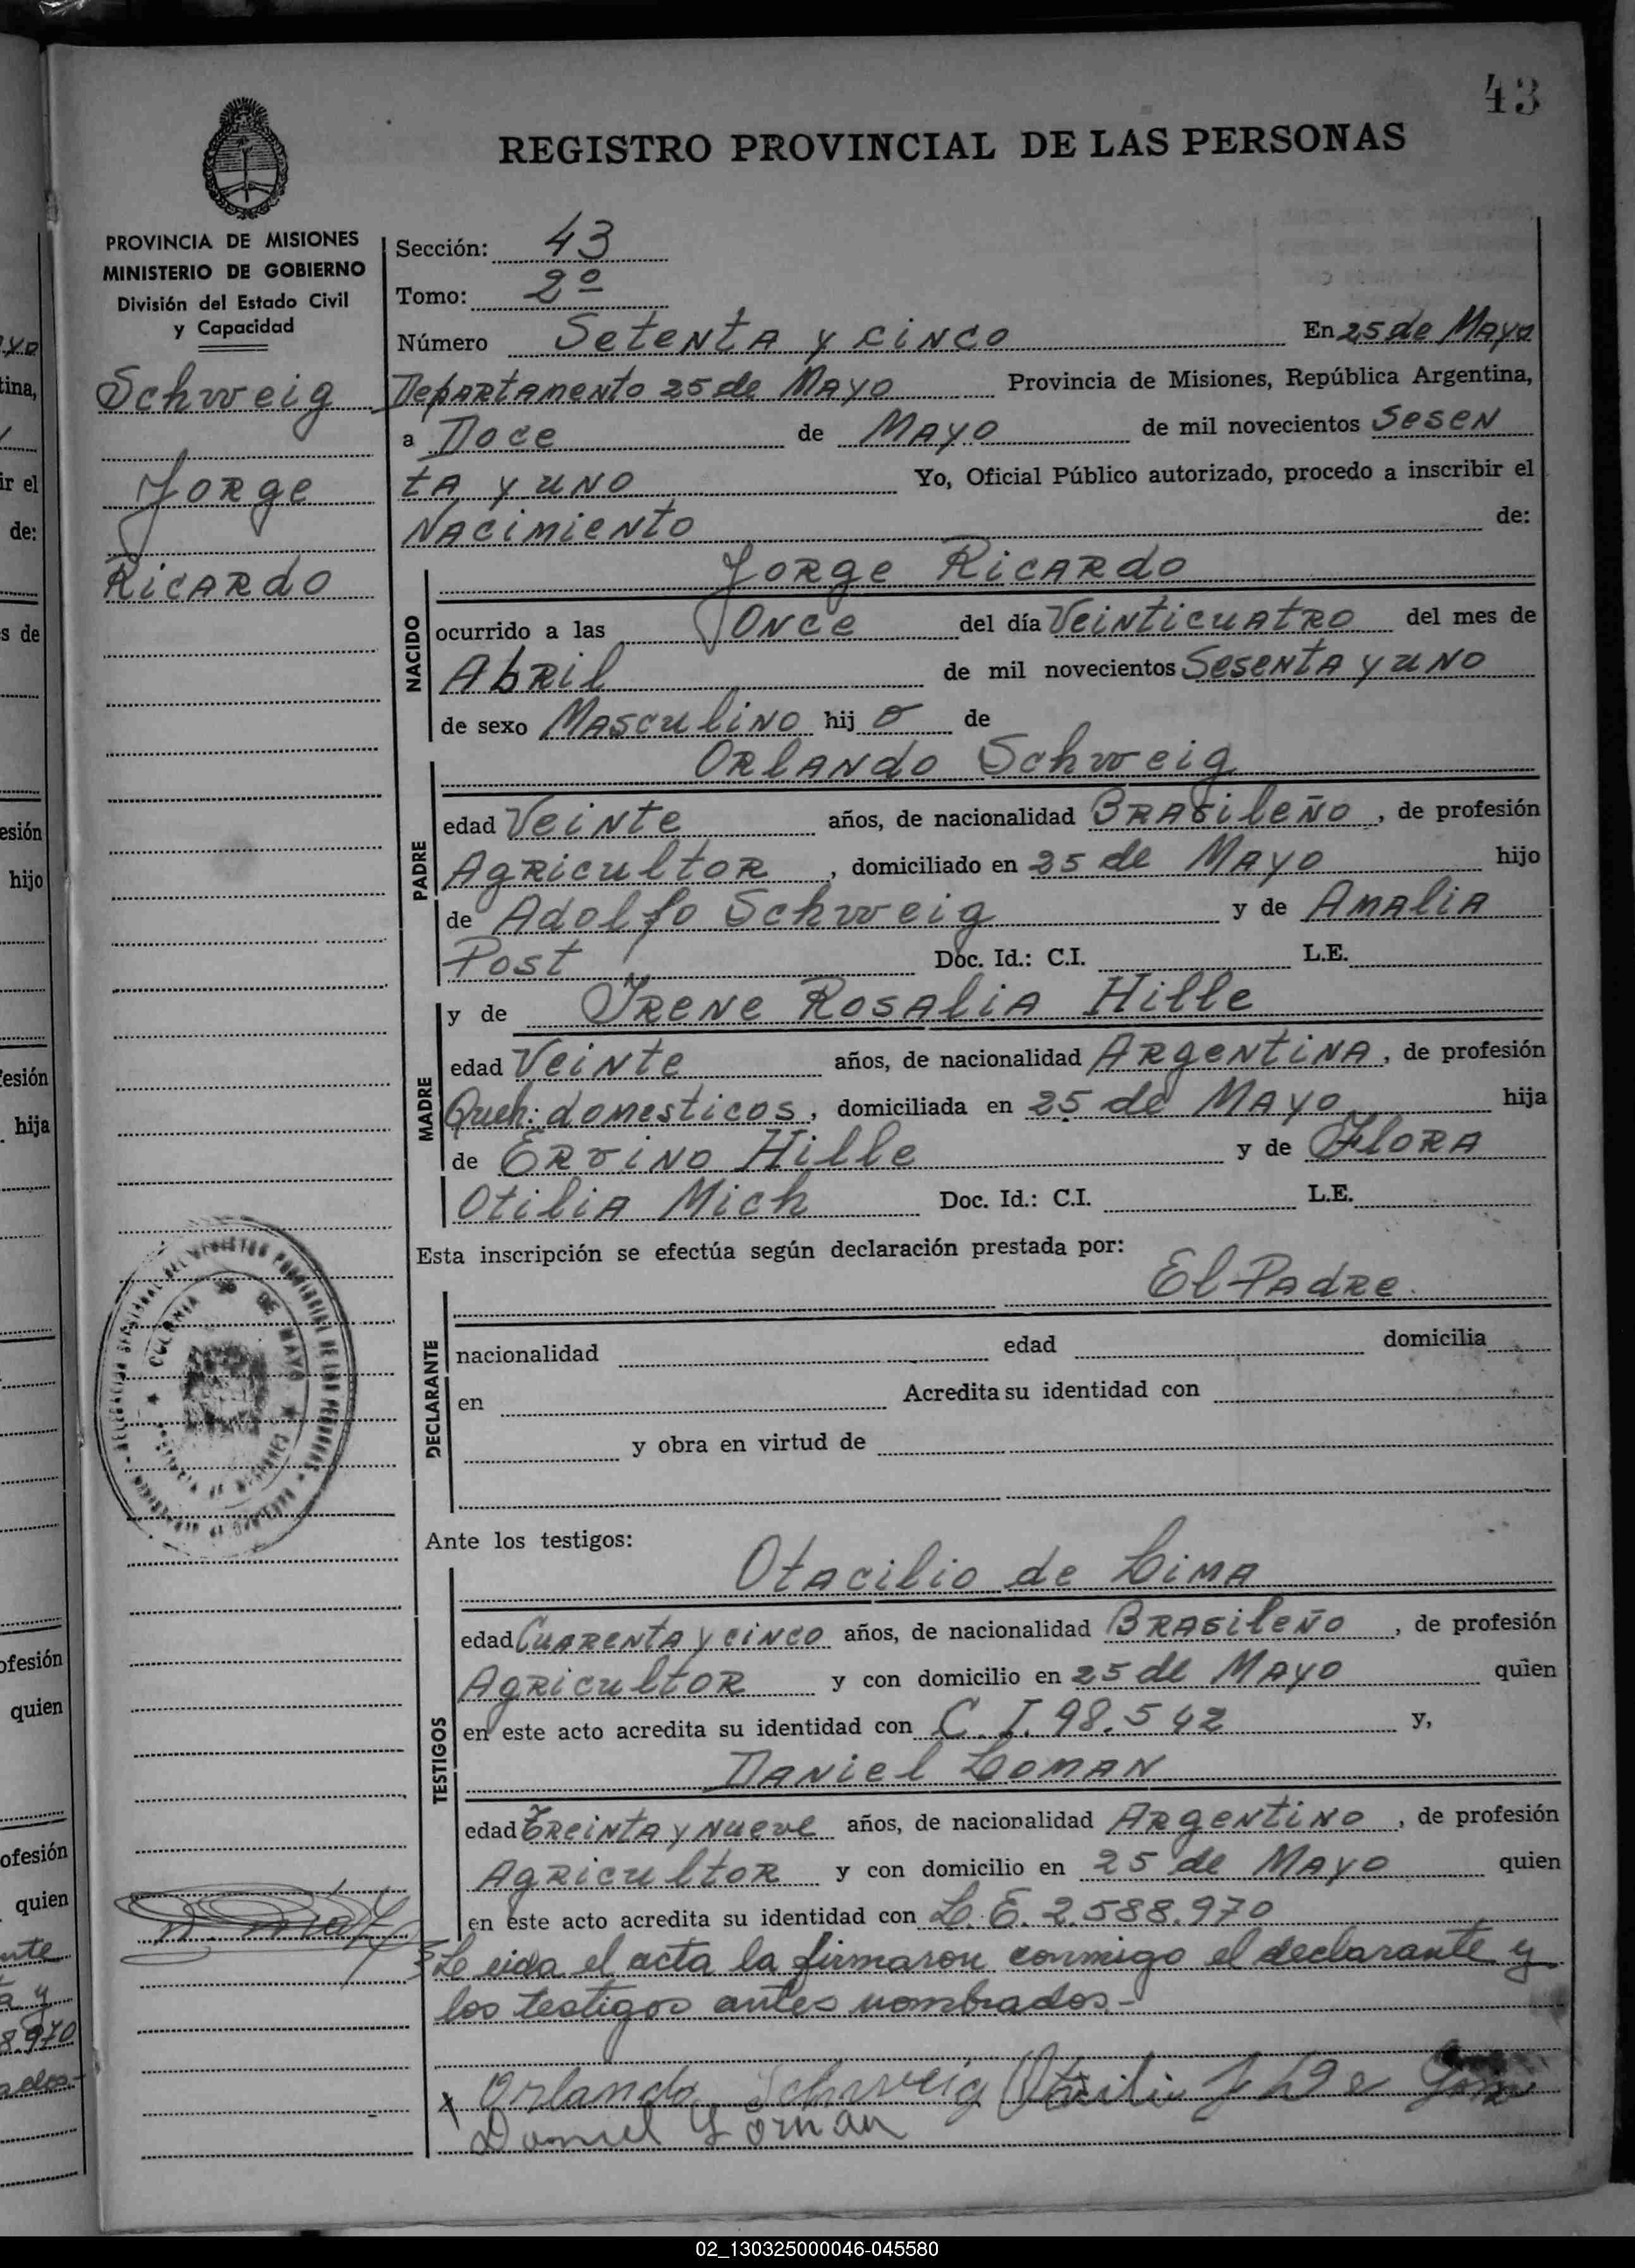 43
REGISTRO PROVINCIAL DE LAS PERSONAS
PROVINCIA DE MISIONES
MINISTERIO DE GOBIERNO
División del Estado Civil
y Capacidad
Schweig
Jorge
Ricardo
Sección: 43
Tomo: 2º
Número Setenta y cinco En 25 de Mayo
Departamento 25 de Mayo Provincia de Misiones, República Argentina,
a Doce de Mayo de mil novecientos Sesen
ta y uno Yo, Oficial Público autorizado, procedo a inscribir el
Nacimiento de:
NACIDO
Jorge Ricardo
ocurrido a las Once del día Veinticuatro del mes de
Abril de mil novecientos Sesenta y uno
de sexo Masculino hij o de
PADRE
Orlando Schweig
edad Veinte años, de nacionalidad Brasileño, de profesión
Agricultor, domiciliado en 25 de Mayo hijo
de Adolfo Schweig y de Amalia
Post Doc. Id.: C.I. L.E.
MADRE
y de Irene Rosalia Hille
edad Veinte años, de nacionalidad Argentina, de profesión
Queh: domesticos, domiciliada en 25 de Mayo hija
de Ervino Hille y de Flora
Otilia Mich Doc. Id.: C.I. L.E.
Esta inscripción se efectúa según declaración prestada por:
El Padre.
DECLARANTE
nacionalidad edad domicilia
en Acredita su identidad con
y obra en virtud de
Ante los testigos:
TESTIGOS
Otacilio de Lima
edad Cuarenta y cinco años, de nacionalidad Brasileño, de profesión
Agricultor y con domicilio en 25 de Mayo quien
en este acto acredita su identidad con C. I. 98.542 y,
Daniel Loman
edad Treinta y nueve años, de nacionalidad Argentino, de profesión
Agricultor y con domicilio en 25 de Mayo quien
en este acto acredita su identidad con L. E. 2.588.970
Leida el acta la firmaron conmigo el declarante y
los testigos antes nombrados-
x Orlando Schweig
Daniel Loman
COLONIA 25 DE MAYO
02_130325000046-045580